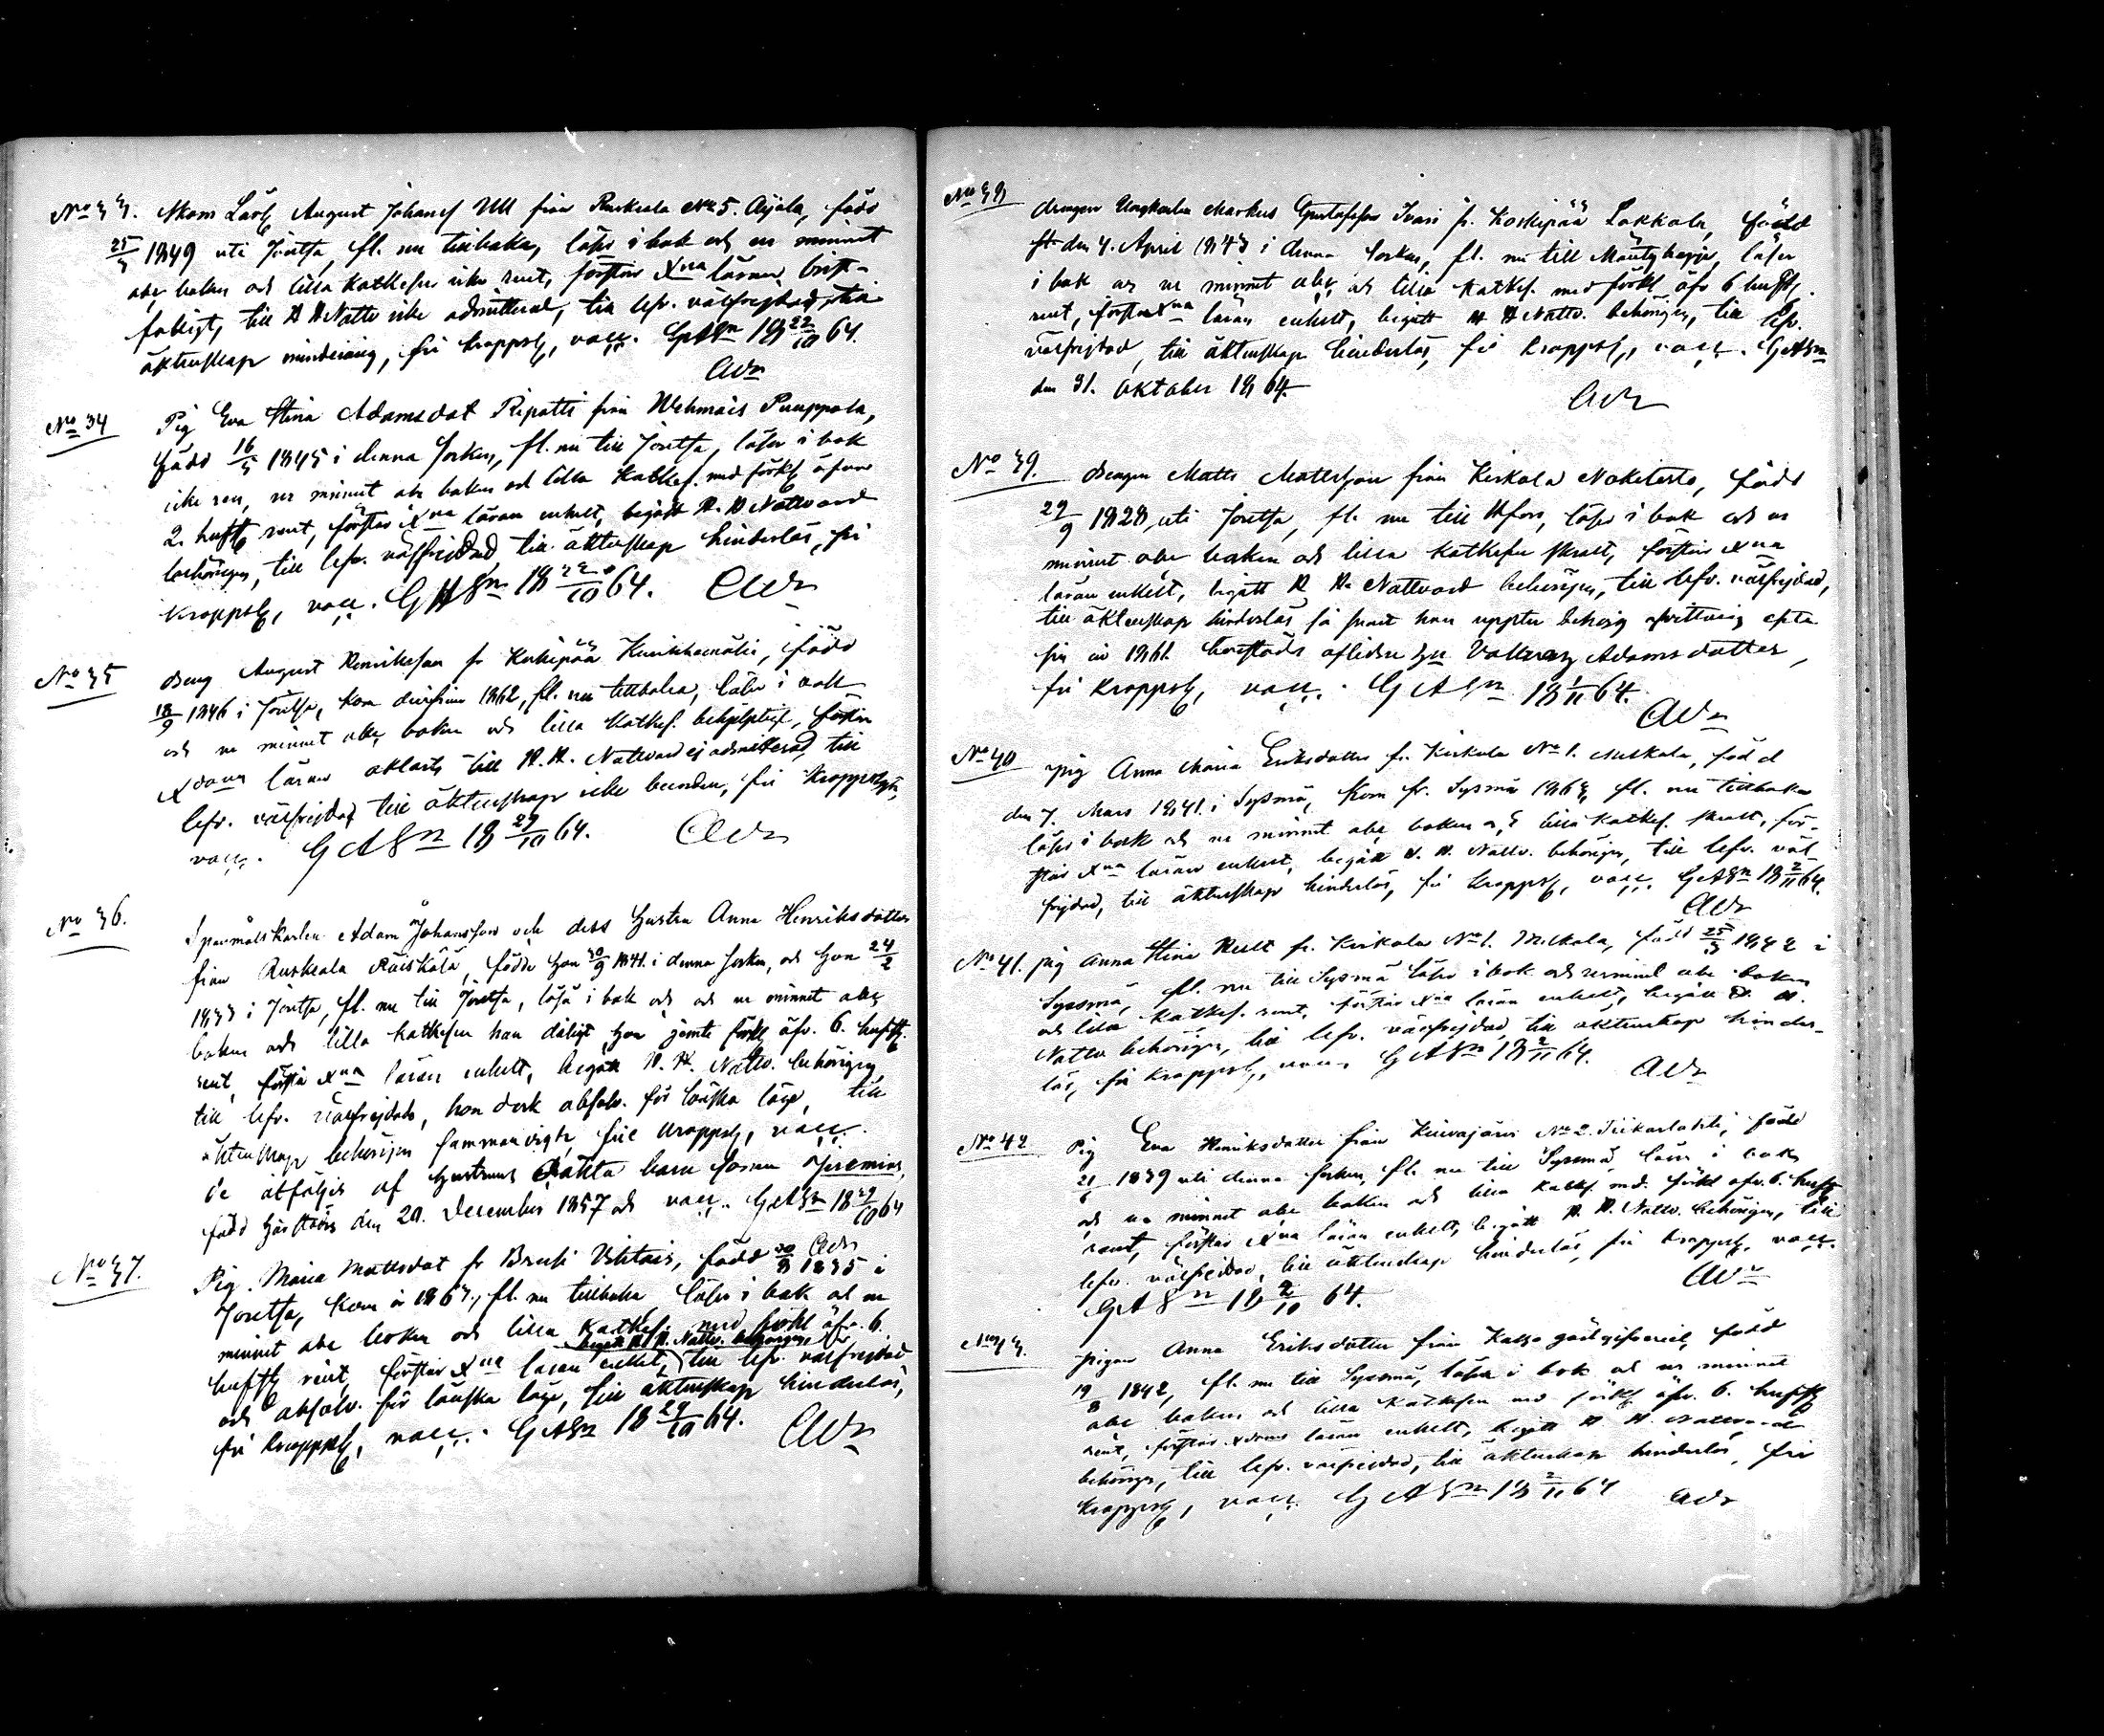 No 33. Skom Lärl August Johanss Ull från Ruskeala No 5. Aijala, född
25/3 1849 uti Joutsa, fl. nu tillbaka, läser i bok och ur minnet
abc boken och lilla kathesen icke rent, förstår Xna läran brist-
fälligt, till H H Nattv icke admitterad, till lefv. välfrejdad, till
äktenskap minderårig, fri kroppsl, vacc. GASm 18 22/10 64.
AWn
No 34 Pig Eva Stina Adamsdot Ripatti från Wehmais Puuppola,
född 16/5 1845 i denna socken, fl. nu till Joutsa, läser i bok
icke ren, ur minnet abc boken och lilla Katkes. med förkl öfver
2. hufst rent, förstår Xna läran enkelt, begått H. H Nattvard
behörigen, till lefv. välfrejdad till äktenskap hinderlös, fri
kroppsl, vacc. GASm 18 22/10 64. AWn
No 35 dreng August Henriksson fr Koskipää Kuukkamäki, född
18/9 1846 i Joutsa, kom derifrån 1862, fl. nu tillbaka, läser i bok
och ur minnet abc boken och lilla Katkes. behjelpligt, förstår
Xdoms läran oklart, till H. H. Nattvard ej admitterad, till
lefv. välfrejdad till äktenskap icke bunden, fri kroppslyte,
vacc. GASm 18 29/10 64. AWn
No 36. Spanmåls karlen Adam Johansson och dess hustru Anna Henriksdotter
från Ruskeala Räiskälä, födde han 30/9 1841. i denna socken, och hon 24/2
1833 i Joutsa, fl. nu till Joutsa, läsa i bok och och ur minnet abc
boken och lilla kathesen han dåligt hon jemte förkl öfv. 6. hufst.
rent, förstå Xna läran enkelt, begått H. H. Nattv. behörigen,
till lefv. välfrejdade, hon dock absolv. för lönska läge, till
äktenskap behörigen sammanvigde, frie kroppsl, vacc.
De åtföljes af hustruns oäkta barn sonen Jeremias,
född härstädes den 20. December 1857 och vacc. GASm 18 29/10 64
AWn
No 37. Pig. Maria Mattsdot fr Bruk Ylitais, född 30/8 1835 i
Joutsa, kom år 1863., fl. nu tillbaka läser i bok och ur
minnet abc boken och lilla Katkes. med förkl öfv. 6.
begått H. H. Nattv. behörigen
hufst rent, förstår Xna läran enkelt, till lefv. välfrejdad
och absolv. för lönska läge, till äktenskap hinderlös,
fri kroppsl, vacc. GASm 18 29/10 64. AWn
No 38 drengen Ungkarlen Markus Gustafsson Ivari fr. Koskipää Lakkola, född
den 4. April 1843 i denna socken, fl. nu till Mäntyharju, läser
i bok och ur minnet abc och lilla katkes. med förkl öfv 6 hufst.
rent, förstår Xna läran enkelt, begått H H Nattv. behörigen, till lefv.
välfrejdad, till äktenskap hinderlös, fri kroppsl, vacc. GASm
den 31. Oktober 1864.
AWn
No 39. drengen Matts Mattsson från Kirkola Nokitasto, född
29/9 1828, uti Joutsa, fl. nu till Hfors, läser i bok och ur
minnet abc boken och lilla kathesen skralt, förstår Xna
läran enkelt, begått H H. Nattvard behörigen, till lefv. välfrejdad,
till äktenskap hinderlös så snart han uppter behörig afvittring efter
sin år 1861. härstädes aflidna hu Valborg Adamsdotter,
fri kroppsl, vacc. GASm 18 1/11 64.
AWn
No 40 pig Anna Maria Eriksdotter fr. Kirkola No 1. Muskala, född
den 7. Mars 1841. i Sysmä, kom fr. Sysmä 1863, fl. nu tillbaka
läser i bok och ur minnet abc boken och lilla katkes. skralt, för-
står Xna läran enkelt, begått H. H. Nattv. behörigen, till lefv. väl-
frejdad, till äktenskap hinderlös, fri kroppsl, vacc. GASm 18 2/11 64.
AWn
No 41. pig Anna Stina Kult fr. Kirkola No 1. Mikkola, född 25/3 1842 i
Sysmä, fl. nu till Sysmä läser i bok och ur minnet abc boken
och lilla katkes. rent, förstår Xna läran enkelt, begått H. H.
Nattv behörigen, till lefv. välfrejdad, till äktenskap hinder-
lös, fri kroppsl, vacc. GASm 18 2/11 64.
AWn
No 42 Pig Eva Henriksdotter från Kuivajärvi No 2. Tiikarlahti, född
21/6 1839 uti denna socken, fl. nu till Sysmä, läser i boken
och ur minnet abc boken och lilla Katkes med. förkl öfv. 6. hufst
rent, förstår Xna läran enkelt, begått H. H. Nattv. behörigen, till
lefv. välfrejdad, till äktenskap hinderlös, fri kroppsl, vacc.
GASm 18 2/10 64. AWn
No 43. pigan Anna Eriksdotter från Kalho gästgifveri, född
19/8 1842, fl. nu till Sysmä, läser i bok och ur minnet
abc boken och lilla Kathesen med förkl öfv. 6. hufst
rent, förstår Xdoms läran enkelt, begått H. H. Nattvard
behörigen, till lefv. välfrejdad, till äktenskap hinderlös, fri
kroppsl, vacc. GASm 18 2/11 64 AWn